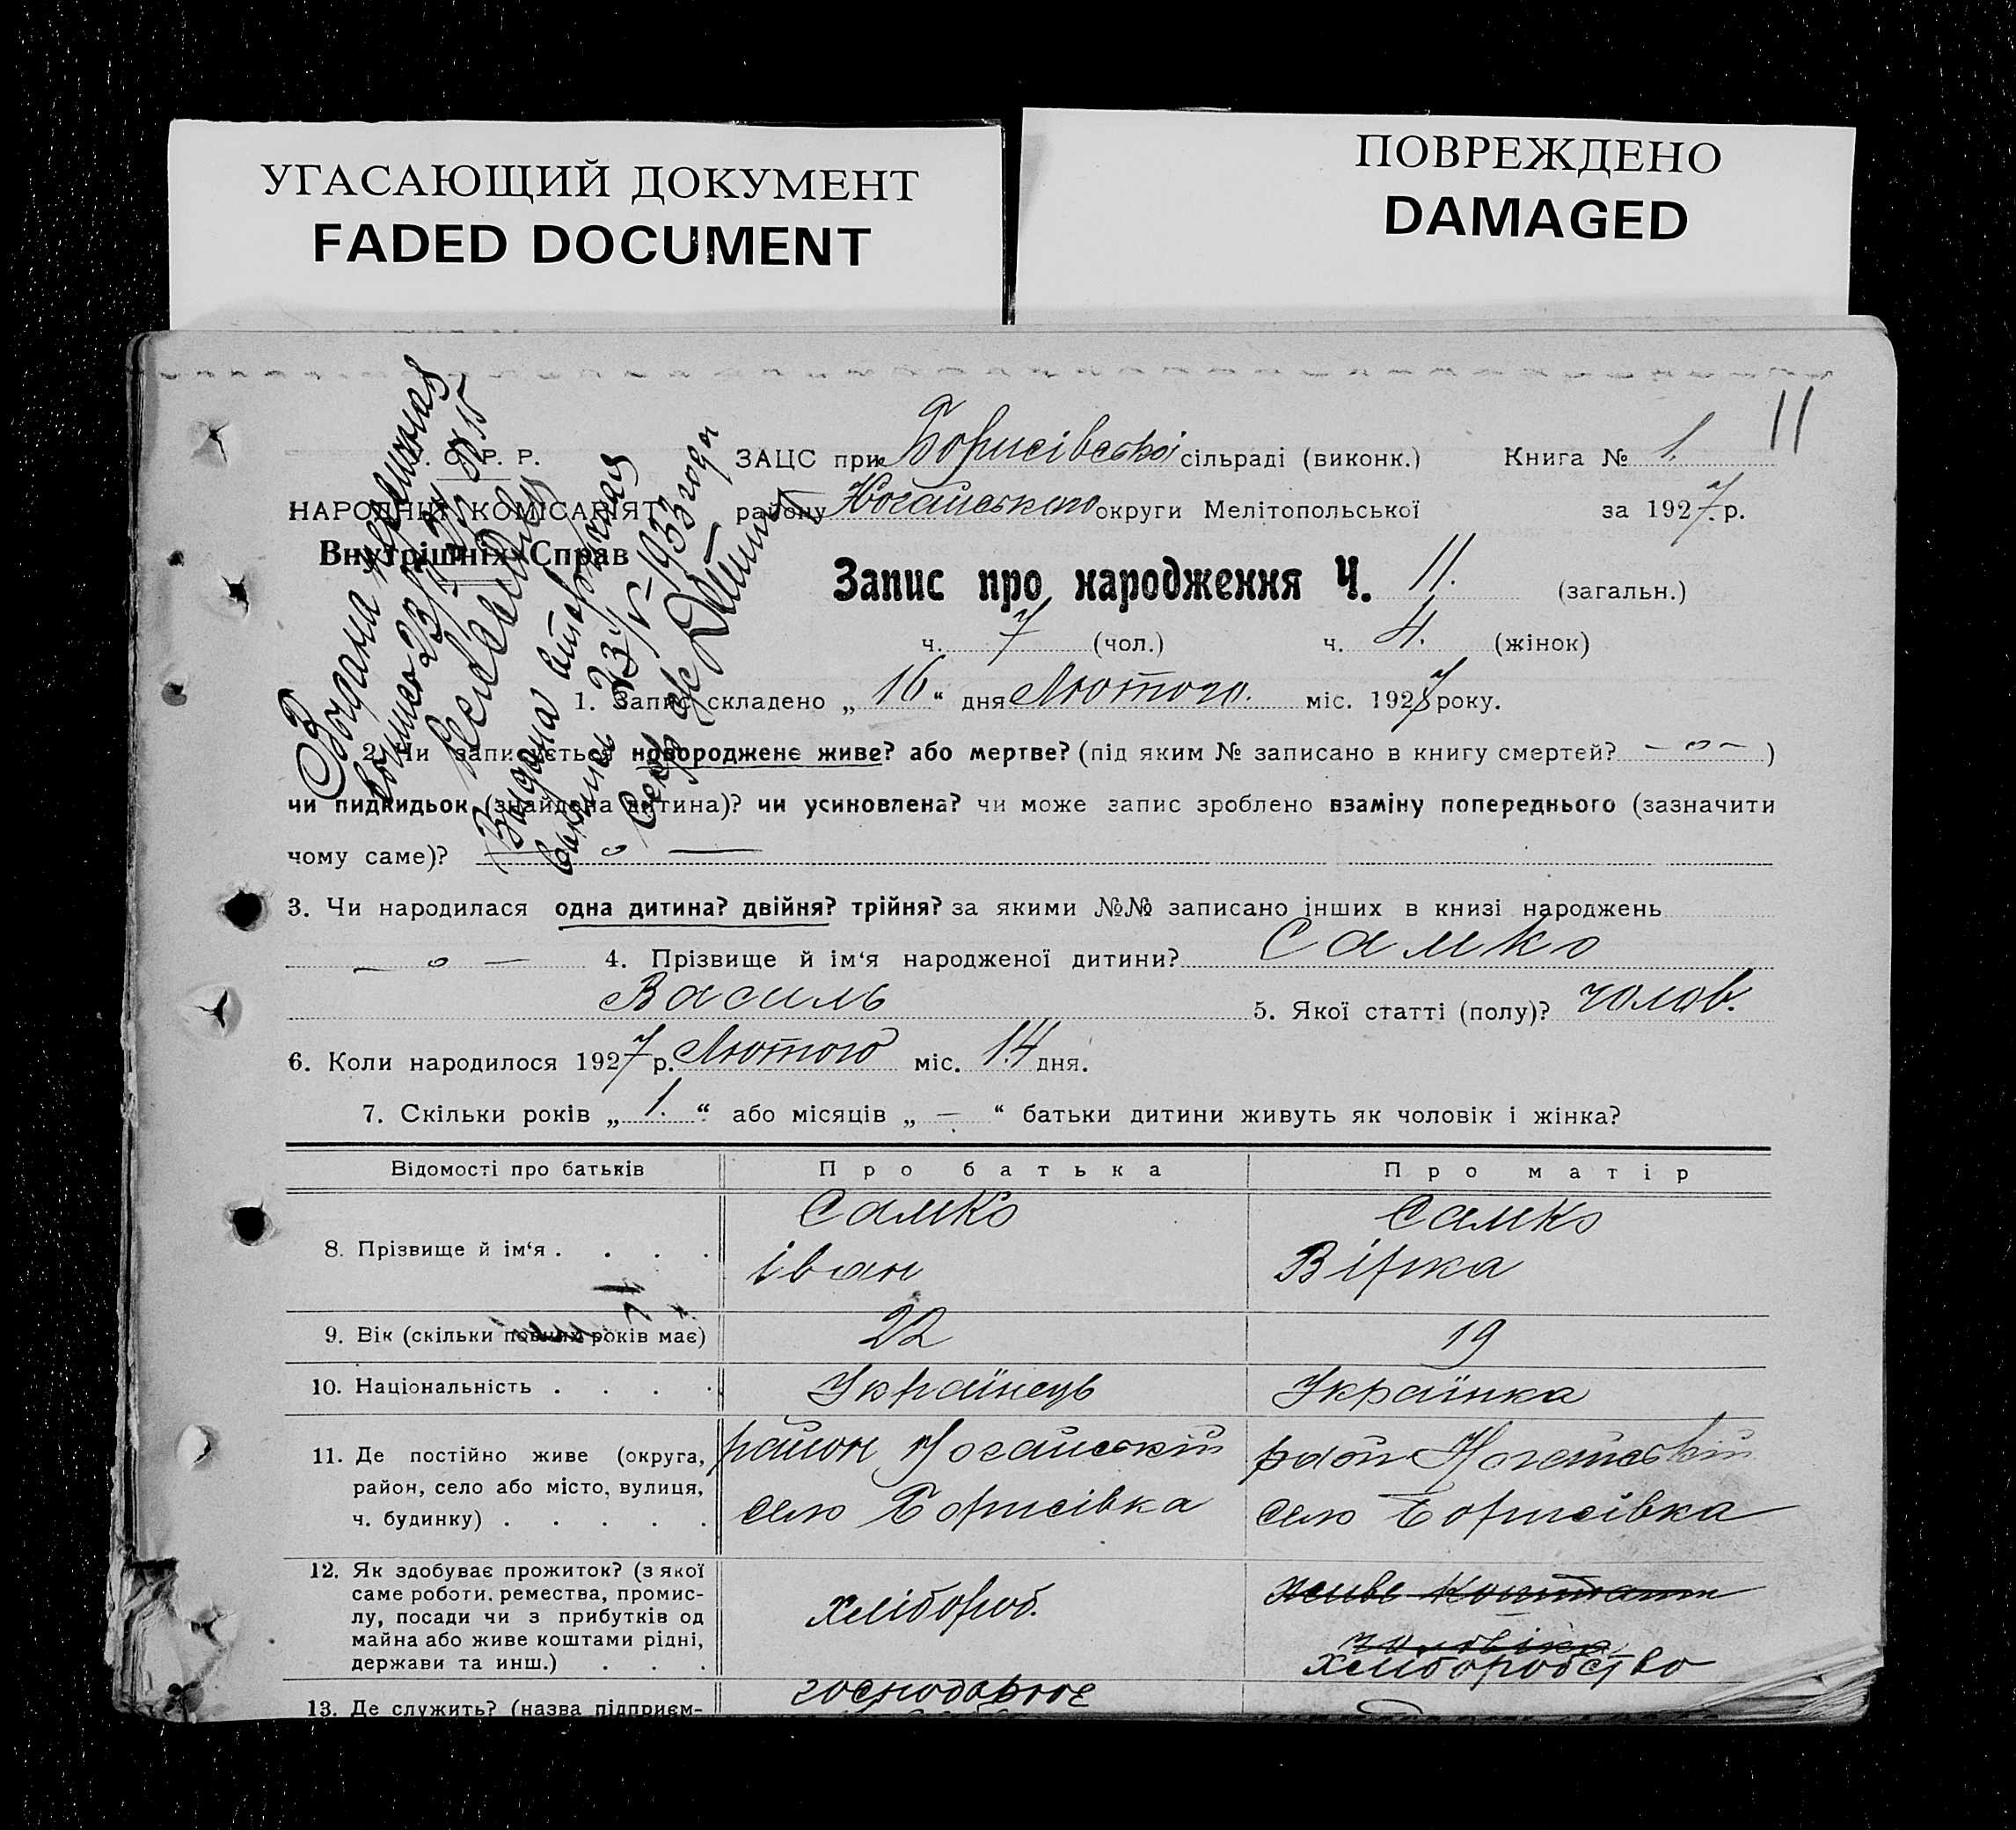 УГАСАЮЩИЙ ДОКУМЕНТ
FADED DOCUMENT
ПОВРЕЖДЕНО
DAMAGED
11
С. Р. Р.
НАРОДНІЙ КОМІСАРІЯТ
Внутрішніх Справ
Видана
23/V
Видана
23/V-1933 года
Секр
ЗАЦС при Борисівській сільраді (виконк.) Книга № 1.
району Ногайського округи Мелітопольської за 1927 р.
Запис про народження Ч. 11. (загальн.)
ч. 7 (чол.) ч. 4. (жінок)
1. Запис складено „ 16 “ дня Лютого. міс. 1927 року.
2. Чи записується новороджене живе? або мертве? (під яким № записано в книгу смертей? — о — )
чи пидкидьок (знайдена дитина)? чи усиновлена? чи може запис зроблено взаміну попереднього (зазначити
чому саме)? — о —
3. Чи народилася одна дитина? двійня? трійня? за якими №№ записано інших в книзі народжень
— о — 4. Прізвище й ім‘я народженої дитини? Самко
Василь 5. Якої статті (полу)? чолов.
6. Коли народилося 1927 р. Лютого міс. 14 дня.
7. Скільки років „ 1. “ або місяців „ — “ батьки дитини живуть як чоловік і жінка?
Відомості про батьків Про батька Про матір
8. Прізвище й ім‘я . . . . Самко Самко
Іван Вірка
9. Вік (скільки повних років має) 22 19
10. Національність . . . . Українець Українка
11. Де постійно живе (округа, район, село або місто, вулиця, ч. будинку) . . . . . район Ногайський район Ногайський
село Борисівка село Борисівка
12. Як здобуває прожиток? (з якої саме роботи, ремества, промислу, посади чи з прибутків од майна або живе коштами рідні, держави та инш.) . . . хлібороб. живе коштами
чоловіка
хліборобство
13. Де служить? (назва підприєм-